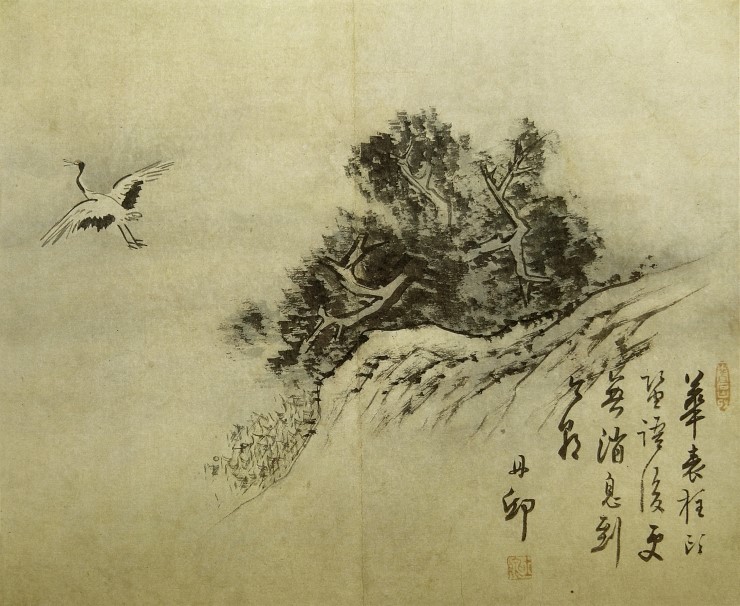 華表柱頭
留語後更
無消息到
今
丹邱